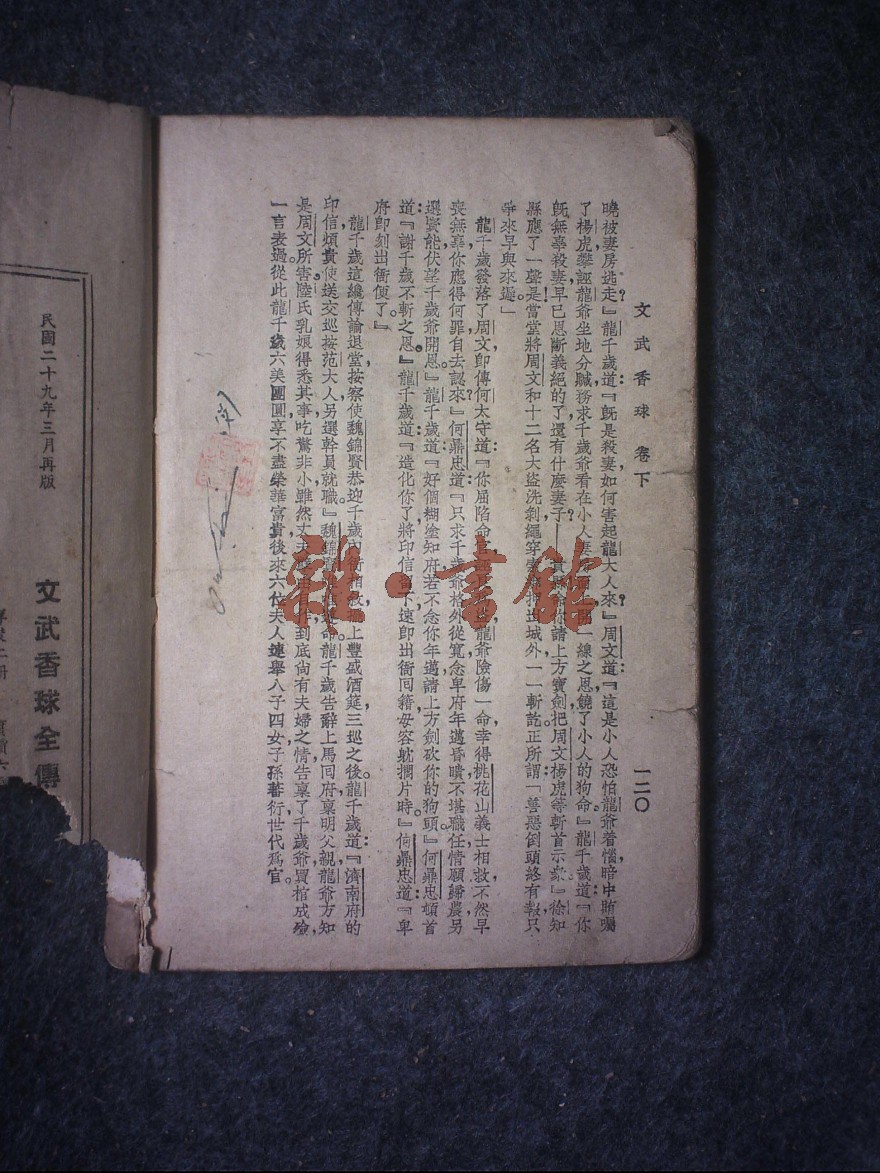 文武香球　卷下
一二〇
曉被妻房逃走？』龍千歲道：『旣是殺妻，如何害起龍大人來？』周文道：『這是小人恐怕龍爺着惱，暗中賄囑
了楊虎攀誣龍爺坐地分贓，務求千歲爺看在小人妻 一線之恩，饒了小人的狗命。』龍千歲道：『你
旣無辜殺妻，早已恩斷義絕的了，還有什麼妻子？ 請上方寶劍，把周文楊虎等斬首示衆。』徐知
縣應了一聲是！當堂將周文和十二名大盜洗剝，繩穿 出城外，一一斬訖。正所謂「善惡倒頭終有報，只
爭來早與來遲。」
龍千歲發落了周文，即傳何太守道：『你屈陷命官， 龍爺險傷一命，幸得桃花山義士相救，不然早
喪無辜，你應得何罪？自去認來。』何鼎忠道：『只求千歲爺格外從寬，念卑府年邁昏瞶，不堪職任，情願歸農，另
選賢能，伏望千歲爺開恩。』龍千歲道：『好個糊塗知府，若不念你年邁，請上方劍砍你的狗頭。』何鼎忠頓首
道：『謝千歲不斬之恩。』龍千歲道：『造化你了，將印信 下，速即出衙囘籍，毋容躭擱片時。』何鼎忠道：『卑
府即刻出衙便了。』
龍千歲這纔傳諭退堂，按察使魏錦賢恭迎千歲內衙相敍， 上豐盛酒筵，三巡之後，龍千歲道：『濟南府的
印信，煩貴使送交巡按范大人，另選幹員就職。』魏錦賢 命，龍千歲告辭上馬囘府，稟明父親，龍爺方知
是周文所害，陸氏乳娘得悉其事，吃驚非小，雖然丈夫 到底尙有夫婦之情，告稟了千歲爺，買棺成殮，
一言表過。從此龍千歲六美團圓，享不盡榮華富貴，後來六位夫人，連舉八子四女，子孫蕃衍，世代爲官。
雜·書館
民國二十九年三月再版
文武香球全傳